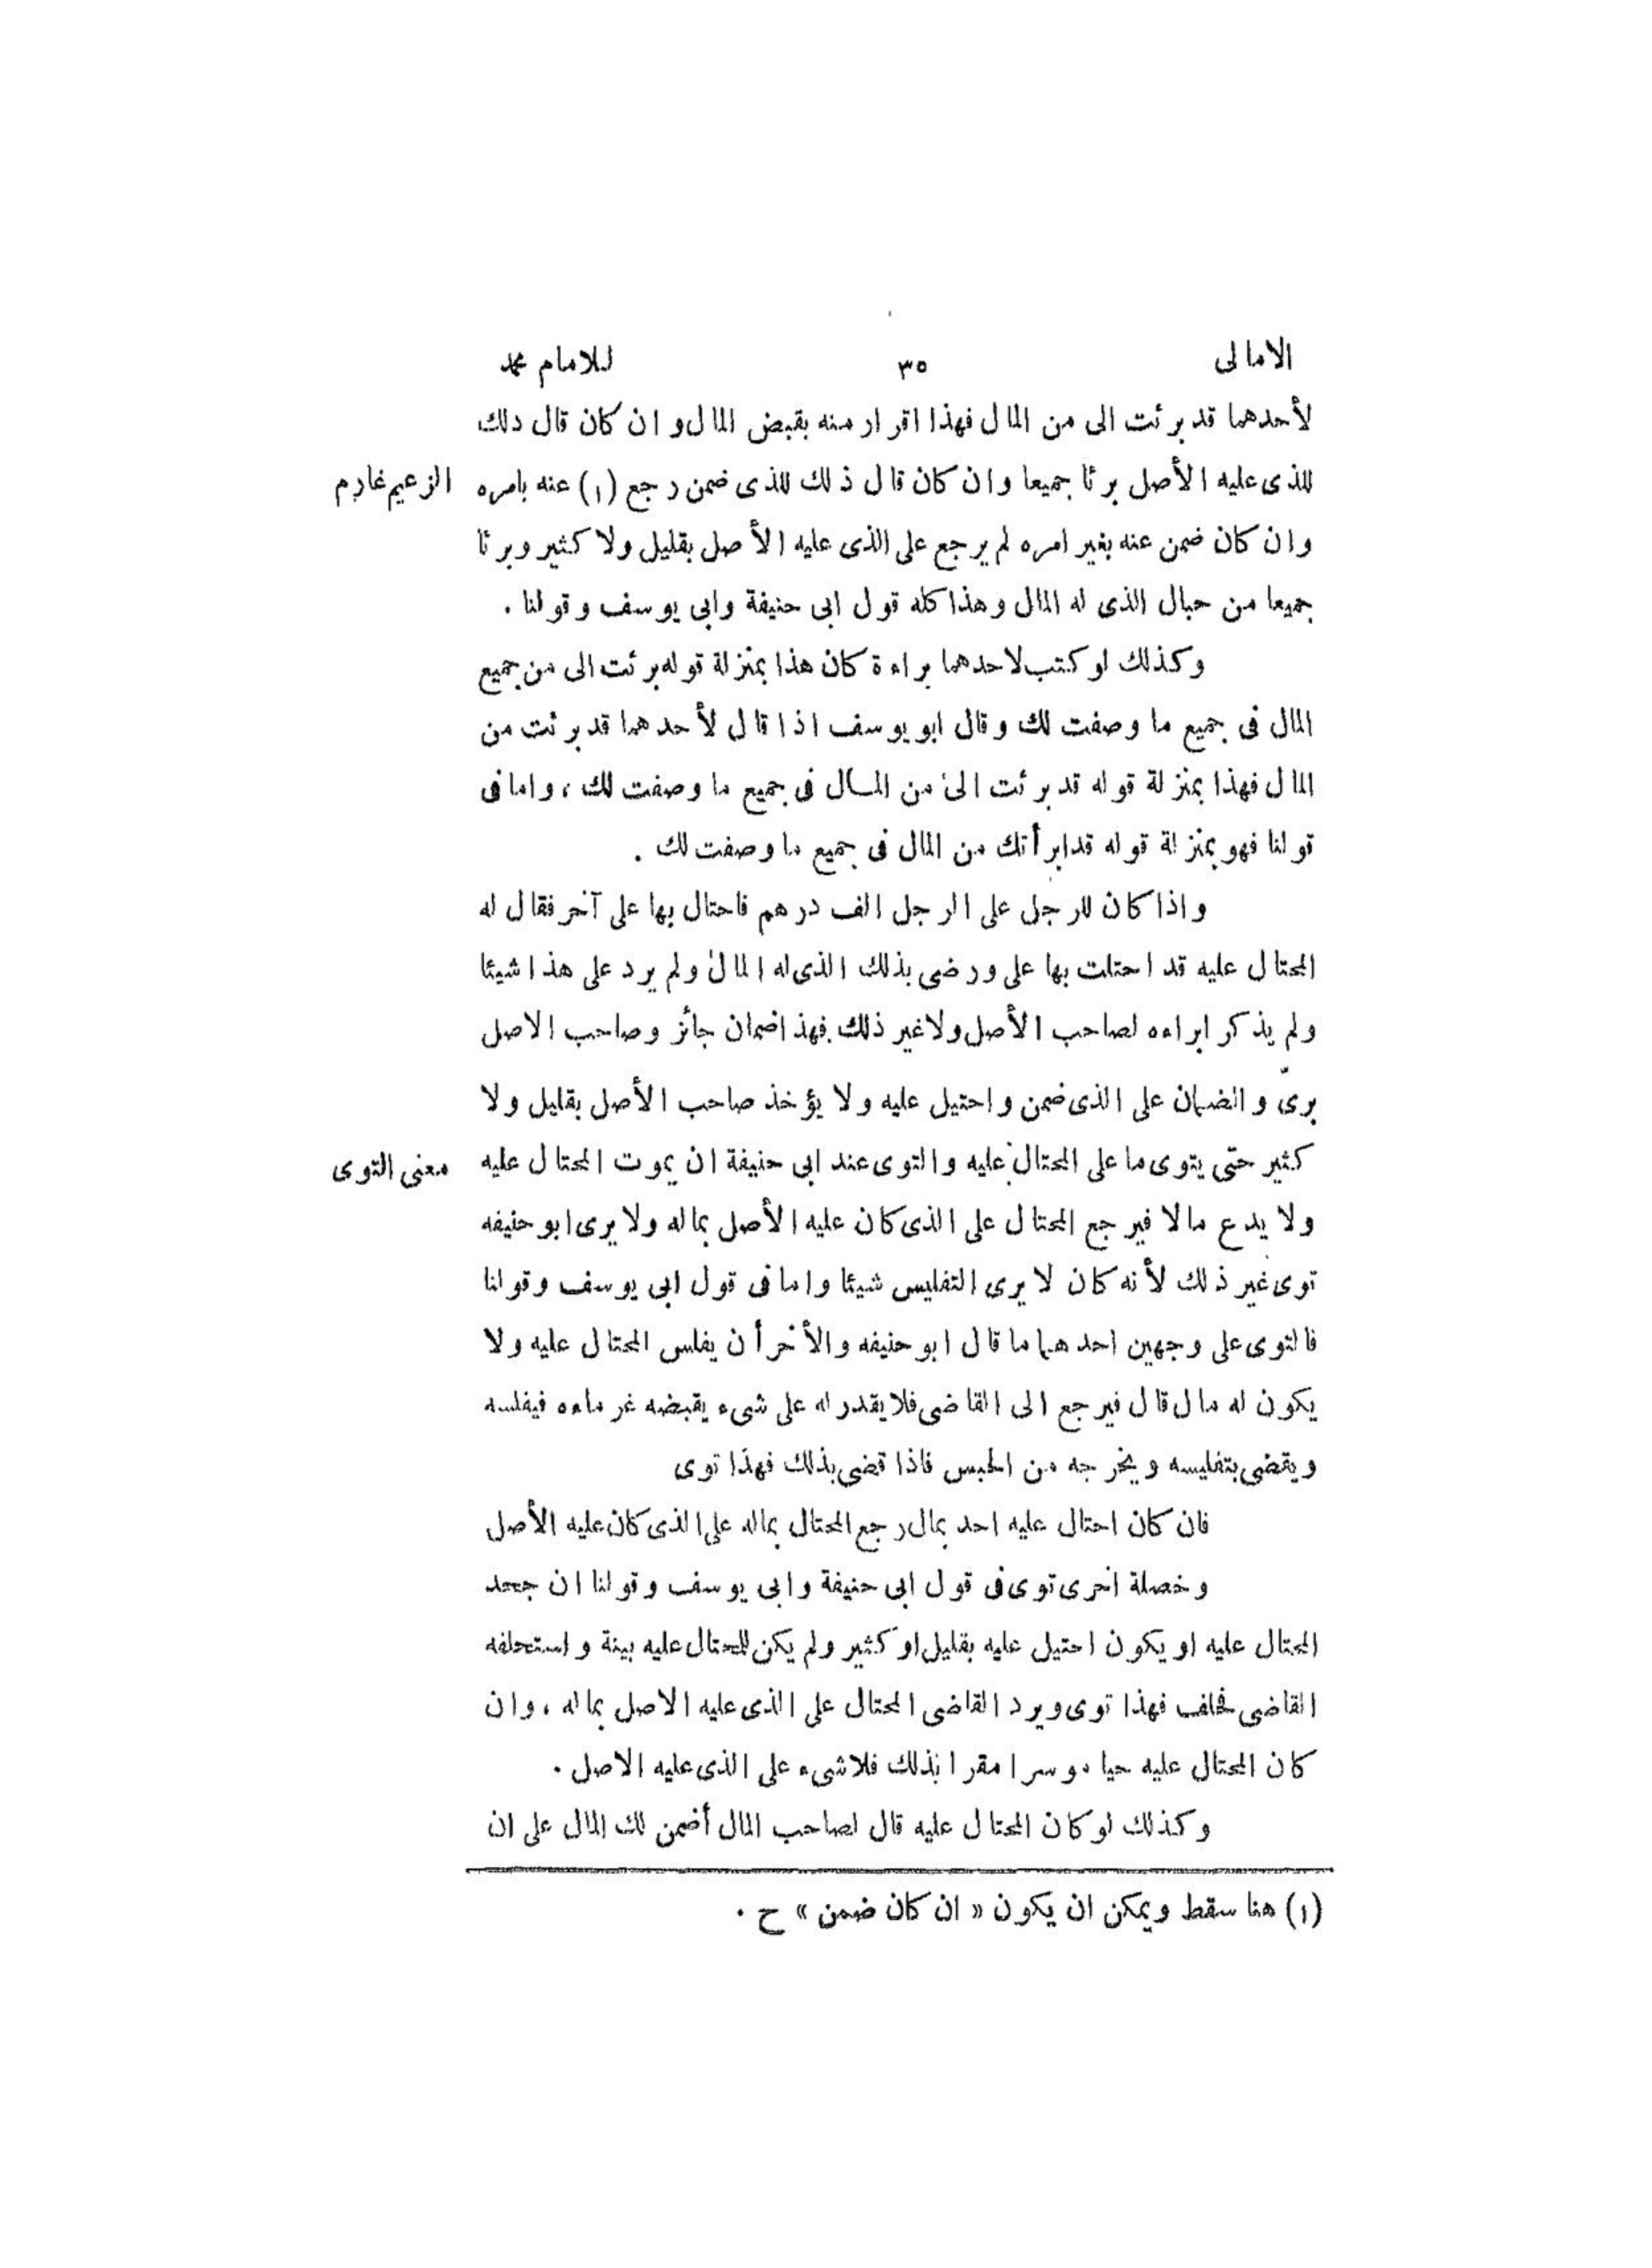 الامالى ٣٥ للامام محمد
لأحدهما قد برئت الى من المال فهذا اقرار منه بقبض المال وان كان قال ذلك
للذى عليه الأصل برئا جميعا وان كان قال ذلك للذى ضمن رجع (١) عنه بامره
الزعيم غارم
وان كان ضمن عنه بغير امره لم يرجع على الذى عليه الأصل بقليل ولا كثير وبرئا
جميعا من حبال الذى له المال وهذا كله قول ابى حنيفة وابى يوسف وقولنا .
وكذلك لو كتب لاحدهما براءة كان هذا بمنزلة قوله برئت الى من جميع
المال فى جميع ما وصفت لك وقال ابو يوسف اذا قال لأحدهما قد برئت من
المال فهذا بمنزلة قوله قد برئت الى من المال فى جميع ما وصفت لك ، واما فى
قولنا فهو بمنزلة قوله قد ابرأتك من المال فى جميع ما وصفت لك .
واذا كان للرجل على الرجل الف درهم فاحتال بها على آخر فقال له
المحتال عليه قد احتلت بها على ورضى بذلك الذى له المال ولم يرد على هذا شيئا
ولم يذكر ابراءه لصاحب الأصل ولا غير ذلك فهذا ضمان جائز وصاحب الاصل
برئ والضمان على الذى ضمن واحتيل عليه ولا يؤخذ صاحب الأصل بقليل ولا
كثير حتى يتوى ما على المحتال عليه والتوى عند ابى حنيفة ان يموت المحتال عليه
معنى التوى
ولا يدع مالا فيرجع المحتال على الذى كان عليه الأصل بماله ولا يرى ابو حنيفه
توى غير ذلك لأنه كان لا يرى التفليس شيئا واما فى قول ابى يوسف وقولنا
فالتوى على وجهين احدهما ما قال ابو حنيفه والأخر أن يفلس المحتال عليه ولا
يكون له مال قال فيرجع الى القاضى فلا يقدر له على شىء يقبضه غرماءه فيفلسه
ويقضى بتفليسه ويخرجه من الحبس فاذا قضى بذلك فهذا توى
فان كان احتال عليه احد بمال رجع المحتال بماله على الذى كان عليه الأصل
وخصلة اخرى توى فى قول ابى حنيفة وابى يوسف وقولنا ان جحد
المحتال عليه او يكون احتيل عليه بقليل او كثير ولم يكن للمحتال عليه بينة واستحلفه
القاضى فحلف فهذا توى ويرد القاضى المحتال على الذى عليه الاصل بماله ، وان
كان المحتال عليه حيا موسرا مقرا بذلك فلا شىء على الذى عليه الاصل .
وكذلك لو كان المحتال عليه قال لصاحب المال أضمن لك المال على ان
(١) هنا سقط ويمكن ان يكون « ان كان ضمن » ح .